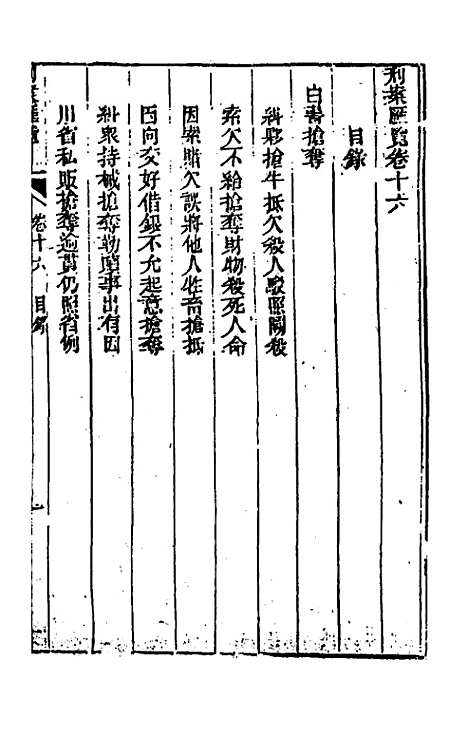 刑案匯覽卷十六
目錄
白晝搶奪
糾夥搶牛抵欠殺人駁照鬬殺
索欠不給搶奪財物殺死人命
因索賭欠誤將他人牲畜搶抵
因向交好借銀不允起意搶奪
糾衆持械搶奪勒贖事出有因
川省私販搶奪逾貫仍照省例
刑案匯覽 卷十六 目錄 一